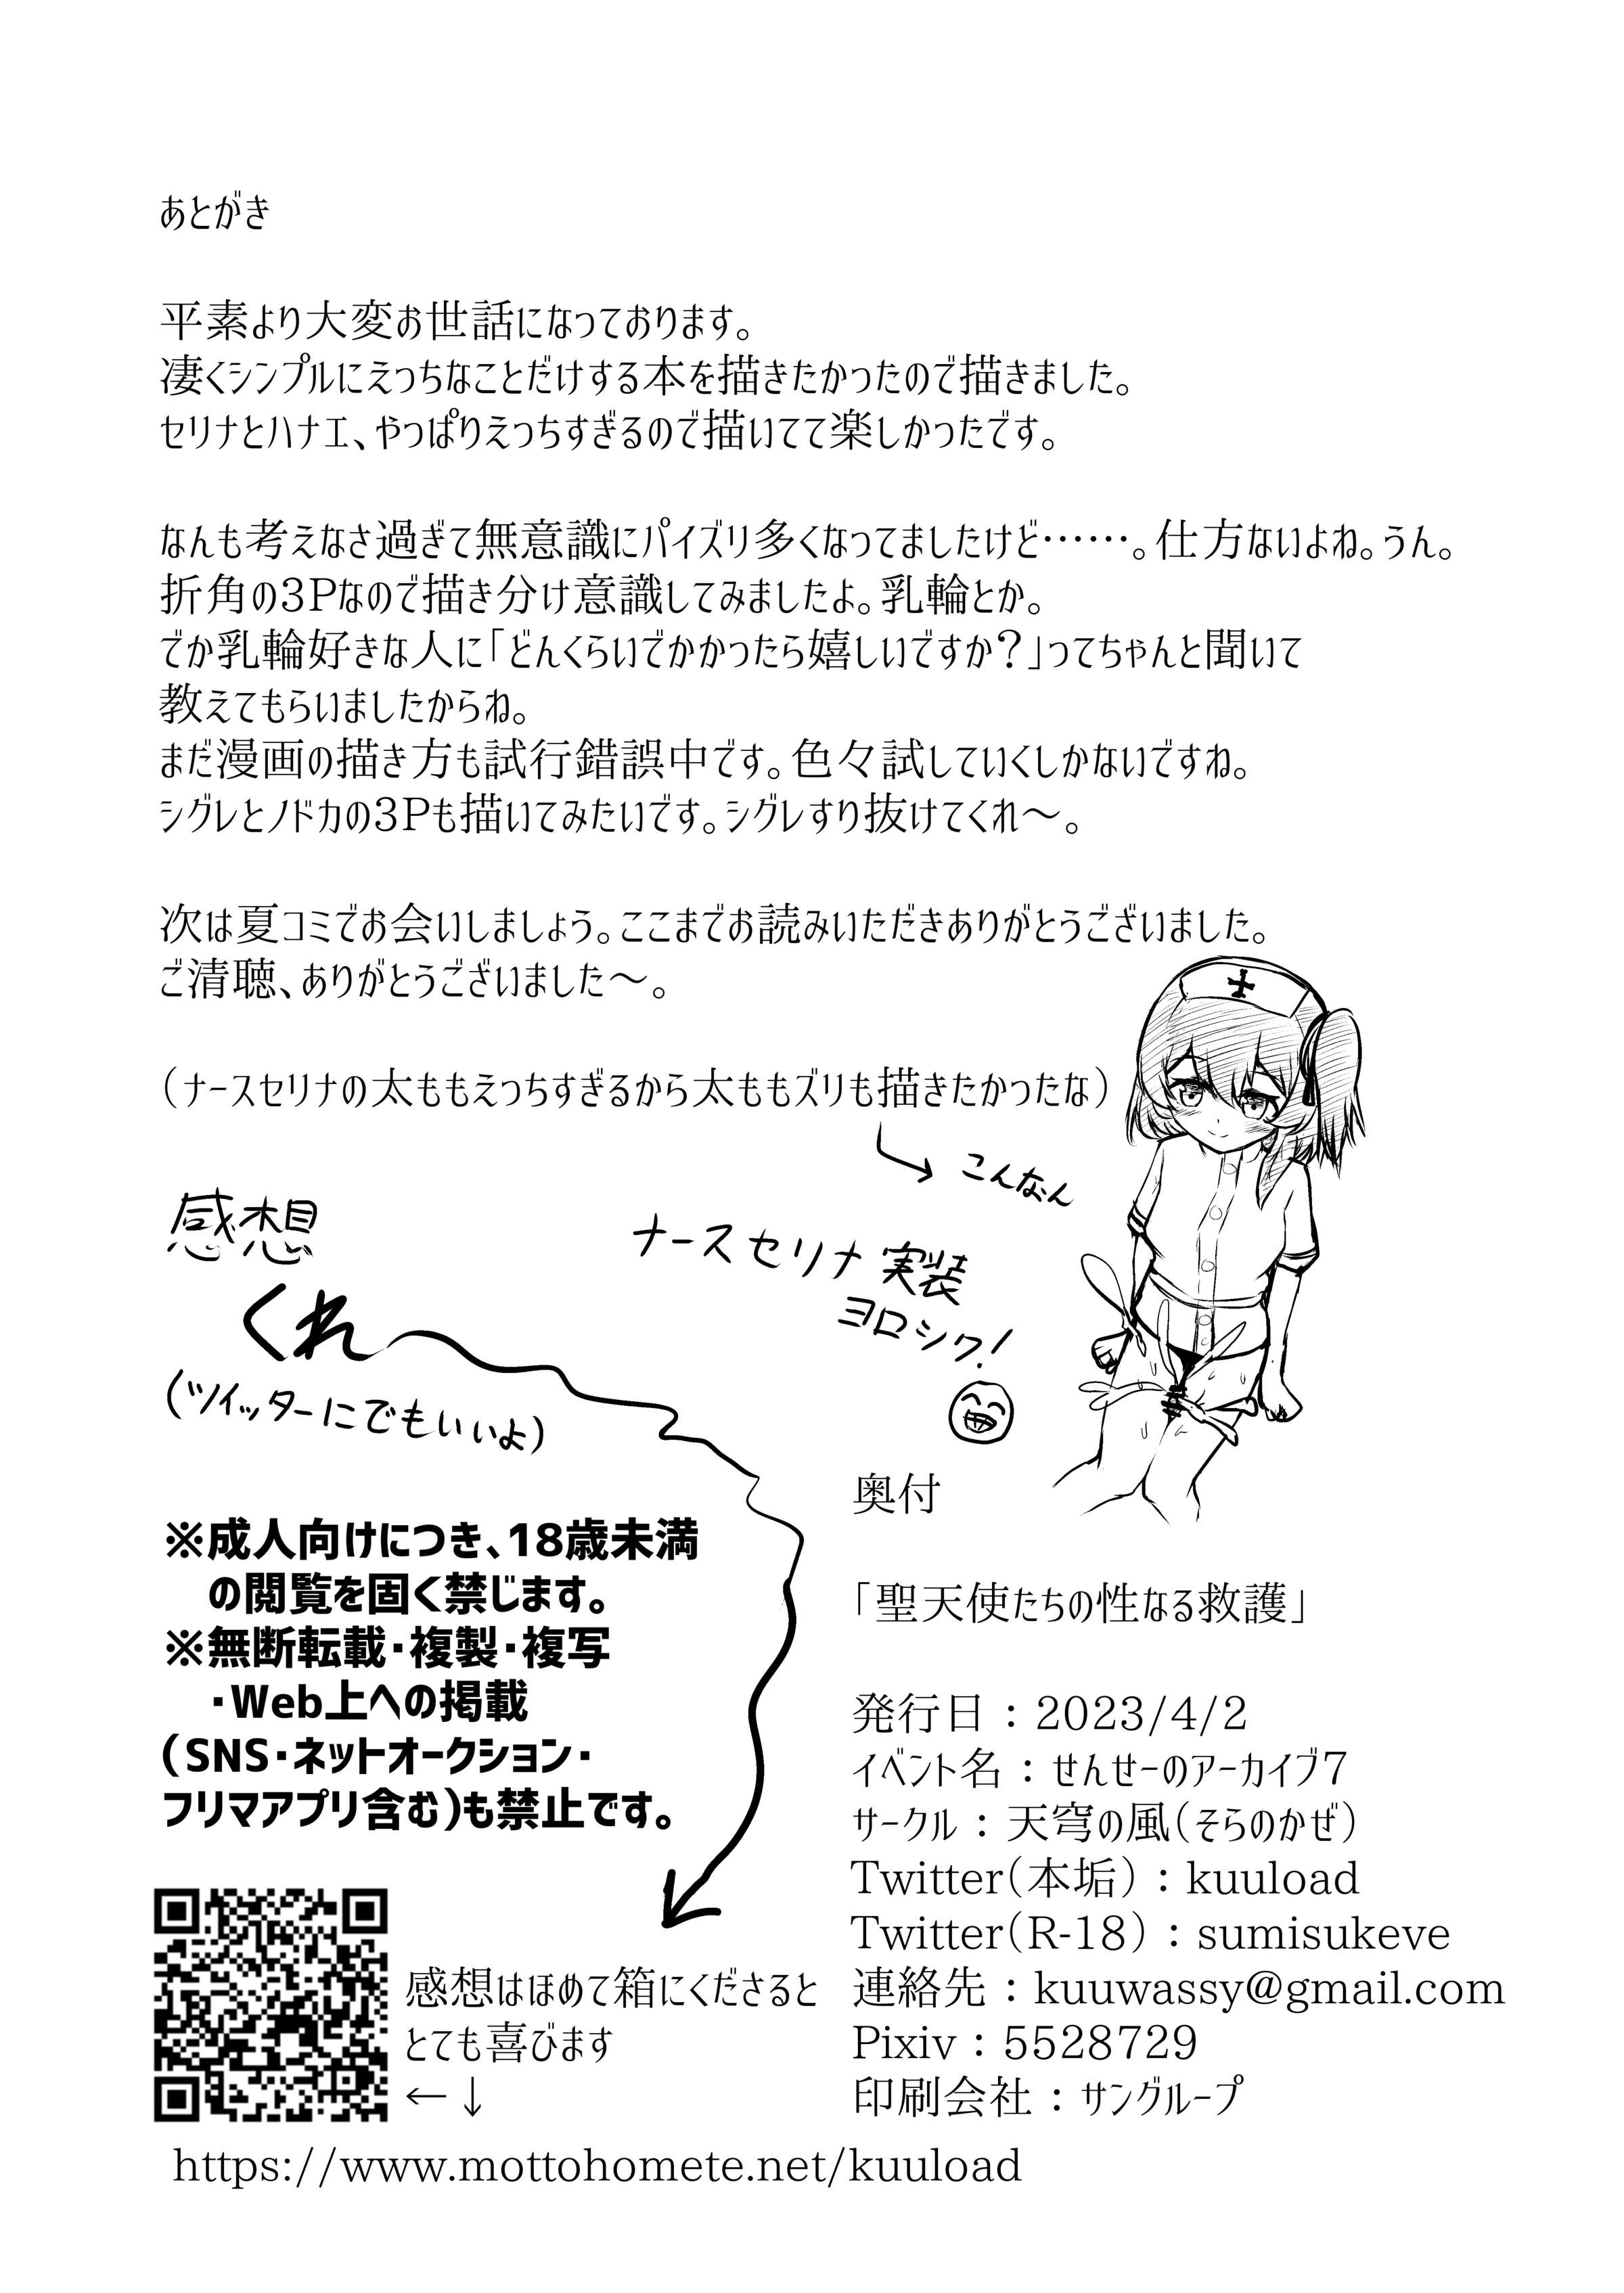 あとがき
平素より大変お世話になっております。
凄くシンプルにえっちなことだけする本を描きたかったので描きました。
セリナとハナエ、やっぱりえっちすぎるので描いてて楽しかったです。
なんも考えなさ過ぎて無意識にパイズリ多くなってましたけど……。仕方ないよね。うん。
折角の3Pなので描き分け意識してみましたよ。乳輪とか。
でか乳輪好きな人に「どんくらいでかかったら嬉しいですか？」ってちゃんと聞いて
教えてもらいましたからね。
まだ漫画の描き方も試行錯誤中です。色々試していくしかないですね。
シグレとノドカの3Pも描いてみたいです。シグレすり抜けてくれ～。
次は夏コミでお会いしましょう。ここまでお読みいただきありがとうございました。
ご清聴、ありがとうございました～。
（ナースセリナの太ももえっちすぎるから太ももズリも描きたかったな）
こんなん
ナースセリナ実装
ヨロシク!
感想
くれ
(ツイッターにでもいいよ)
※成人向けにつき、18歳未満
の閲覧を固く禁じます。
※無断転載・複製・複写
・Web上への掲載
（SNS・ネットオークション・
フリマアプリ含む）も禁止です。
感想はほめて箱にくださると
とても喜びます
←↓
https://www.mottohomete.net/kuuload
奥付
「聖天使たちの性なる救護」
発行日：2023/4/2
イベント名：せんせーのアーカイブ7
サークル：天穹の風（そらのかぜ）
Twitter（本垢）：kuuload
Twitter（R-18）：sumisukeve
連絡先：kuuwassy@gmail.com
Pixiv：5528729
印刷会社：サングループ